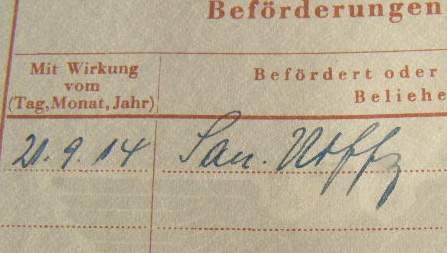 Beförderungen
Mit Wirkung
vom
(Tag, Monat, Jahr)
Befördert oder
Beliehe
21.9.14 San. Utffz